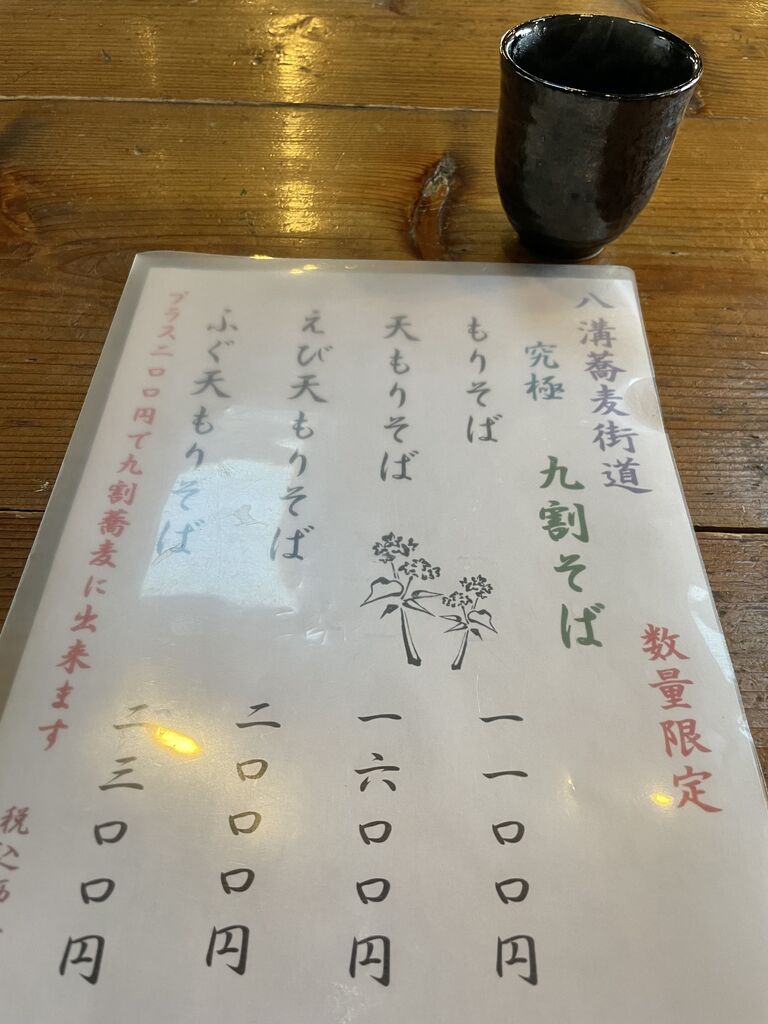 八溝蕎麦街道
究極 九割そば
数量限定
もりそば 一一〇〇円
天もりそば 一六〇〇円
えび天もりそば 二〇〇〇円
ふぐ天もりそば 二三〇〇円
プラス二〇〇円で九割蕎麦に出来ます
税込